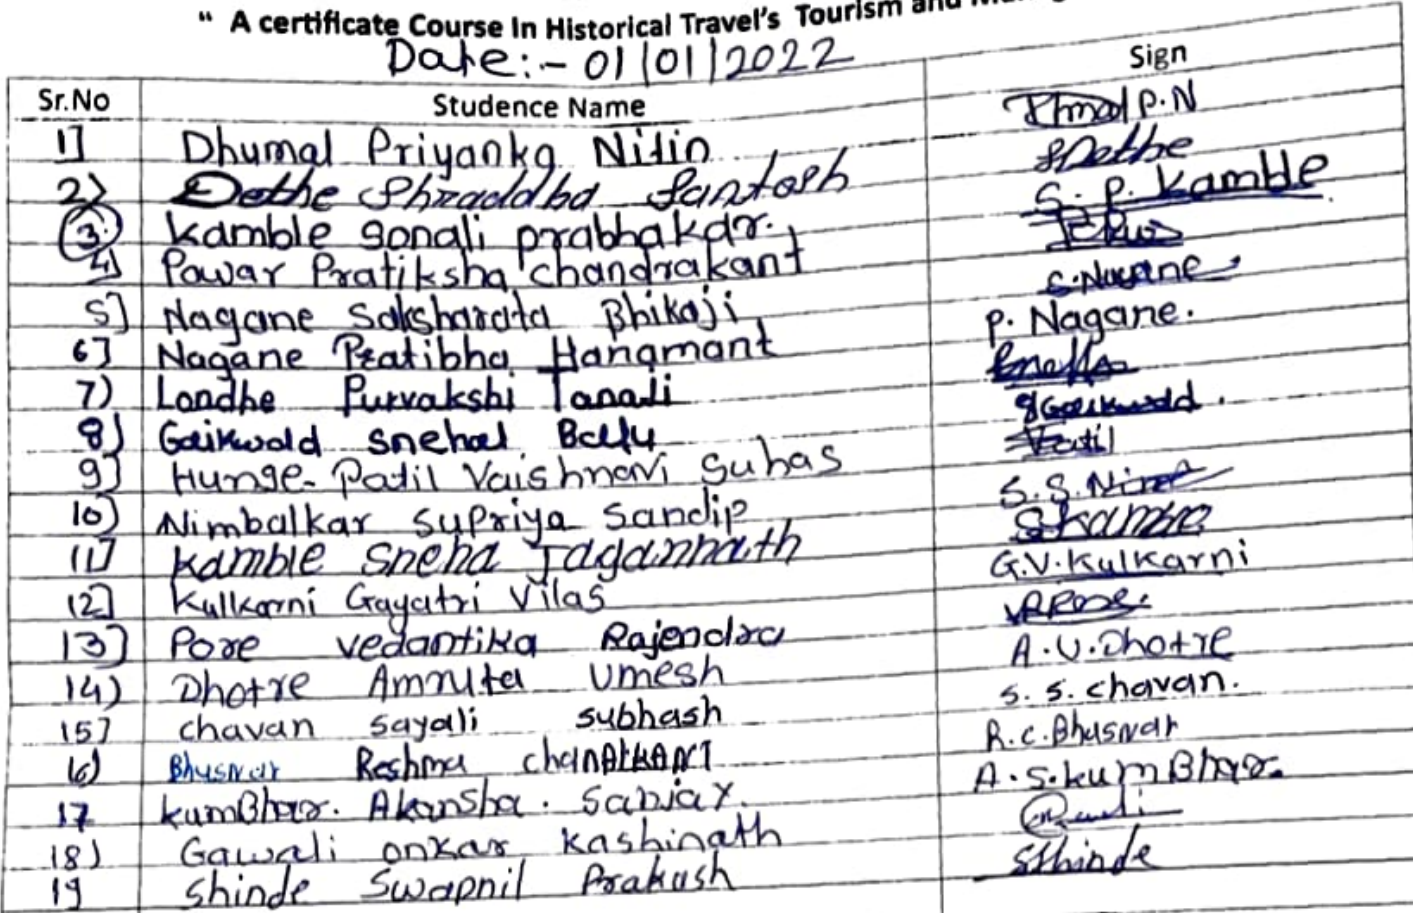 " A certificate Course In Historical Travel's Tourism and
Date:- 01/01/2022
Sr.No Studence Name Sign
1] Dhumal Priyanka Nitin P.N
2) Dethe Shraddha Santosh SDethe
3 Kamble Sonali prabhakar. S. P. Kamble
4) Pawar Pratiksha chandrakant
5] Nagane Saksharata Bhikaji S.Nagane
6] Nagane Pratibha Hanamant P. Nagane.
7) Londhe Purvakshi Tanaji
8) Gaikwald snehal Ballu SGaikwald.
9] Hunge-Patil Vaishnavi Suhas Patil
10) Nimbalkar Supriya Sandip S.S.
11] Kamble Sneha Jagannath SKamble
12] Kulkarni Gayatri Vilas G.V.Kulkarni
13] Pore vedantika Rajendra
14) Dhotre Amruta Umesh A.U.Dhotre
15] chavan sayali subhash S.S.chavan.
16) Bhusnar Reshma R.C.Bhusnar
17 kumBhar. Akansha. Sanjay. A.S.kumBhar.
18) Gawali onkar kashinath
19 Shinde Swapnil Prakash SShinde